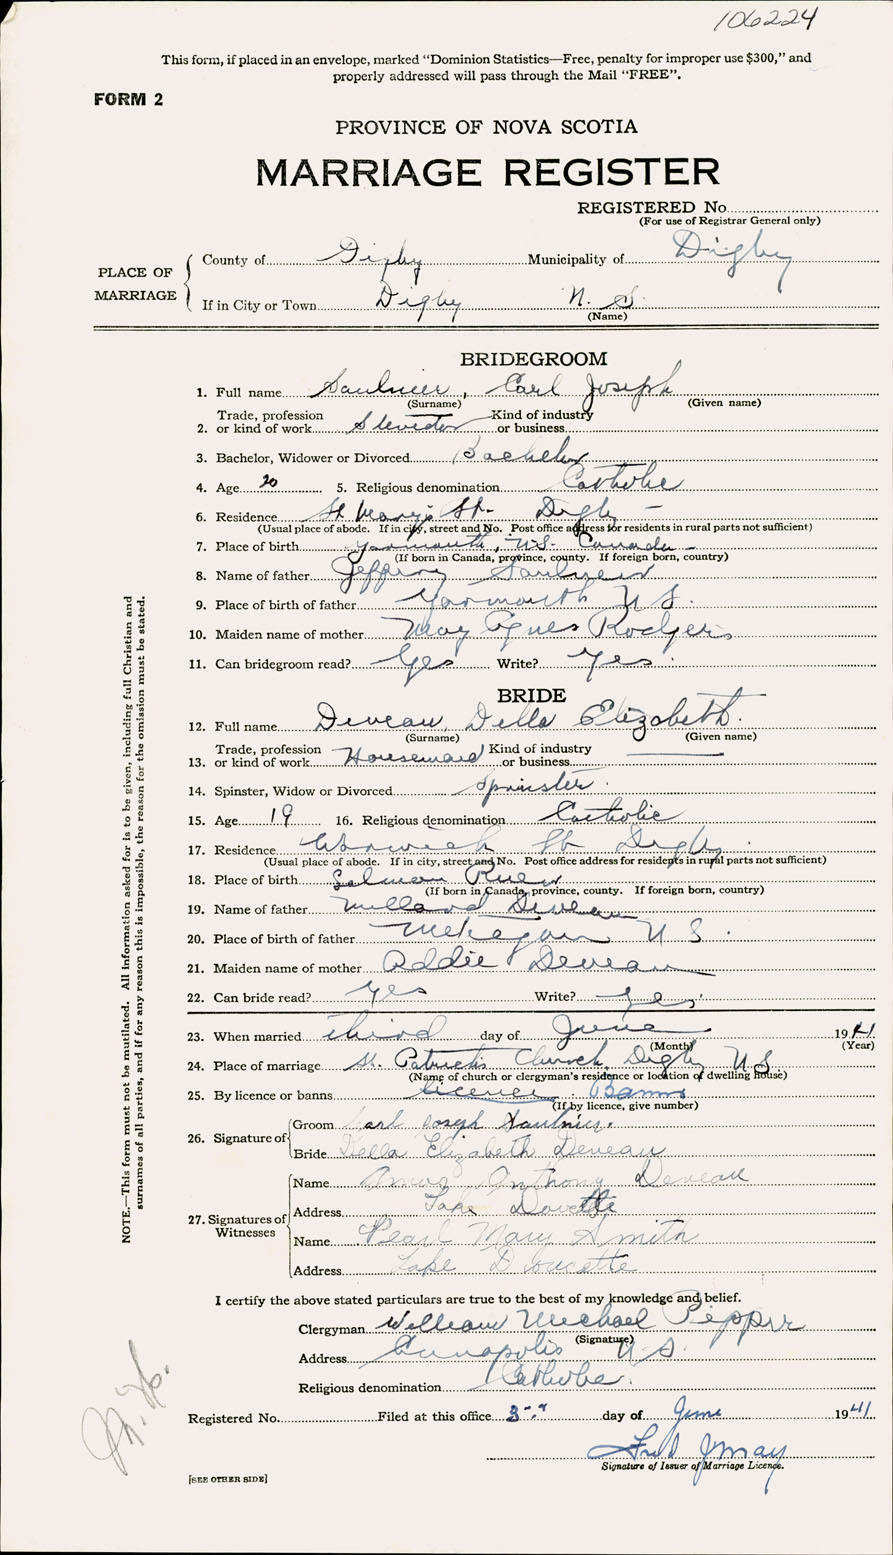 106224
This form, if placed in an envelope, marked “Dominion Statistics—Free, penalty for improper use $300,” and
properly addressed will pass through the Mail “FREE”.
FORM 2
PROVINCE OF NOVA SCOTIA
MARRIAGE REGISTER
REGISTERED No.
(For use of Registrar General only)
PLACE OF MARRIAGE
County of Digby Municipality of Digby
If in City or Town Digby N. S.
(Name)
BRIDEGROOM
1. Full name Saulnier, Carl Joseph
(Surname) (Given name)
Trade, profession Kind of industry
2. or kind of work Stevidor or business
3. Bachelor, Widower or Divorced Bachelor
4. Age 20 5. Religious denomination Catholic
6. Residence St Mary's St. Digby
(Usual place of abode. If in city, street and No. Post office address for residents in rural parts not sufficient)
7. Place of birth Yarmouth, N.S. Canada
(If born in Canada, province, county. If foreign born, country)
8. Name of father Jeffrey Saulnier
9. Place of birth of father Yarmouth N S.
10. Maiden name of mother May Agnes Rodgers
11. Can bridegroom read? Yes Write? Yes.
BRIDE
12. Full name Deveau, Della Elizabeth.
(Surname) (Given name)
Trade, profession Kind of industry
13. or kind of work Housemaid or business
14. Spinster, Widow or Divorced Spinster.
15. Age 19 16. Religious denomination Catholic
17. Residence Warwick St Digby.
(Usual place of abode. If in city, street and No. Post office address for residents in rural parts not sufficient)
18. Place of birth Salmon River
(If born in Canada, province, county. If foreign born, country)
19. Name of father Millard Deveau
20. Place of birth of father Metegan N S.
21. Maiden name of mother Addie Deveau
22. Can bride read? Yes Write? Yes.
23. When married third day of June 1941
(Month) (Year)
24. Place of marriage St. Patrick's Church, Digby N S.
(Name of church or clergyman's residence or location of dwelling house)
25. By licence or banns licence Banns
(If by licence, give number)
26. Signature of
Groom Carl Joseph Saulnier.
Bride Della Elizabeth Deveau
27. Signatures of Witnesses
Name Amos Anthony Deveau
Address Lake Doucette
Name Pearl Mary Smith
Address Lake Doucette
I certify the above stated particulars are true to the best of my knowledge and belief.
Clergyman William Michael Pepper
(Signature)
Address Annapolis N. S.
Religious denomination Catholic.
Registered No. Filed at this office 3rd day of June 1941
Signature of Issuer of Marriage Licence.
[SEE OTHER SIDE]
NOTE.—This form must not be mutilated. All information asked for is to be given, including full Christian and
surnames of all parties, and if for any reason this is impossible, the reason for the omission must be stated.